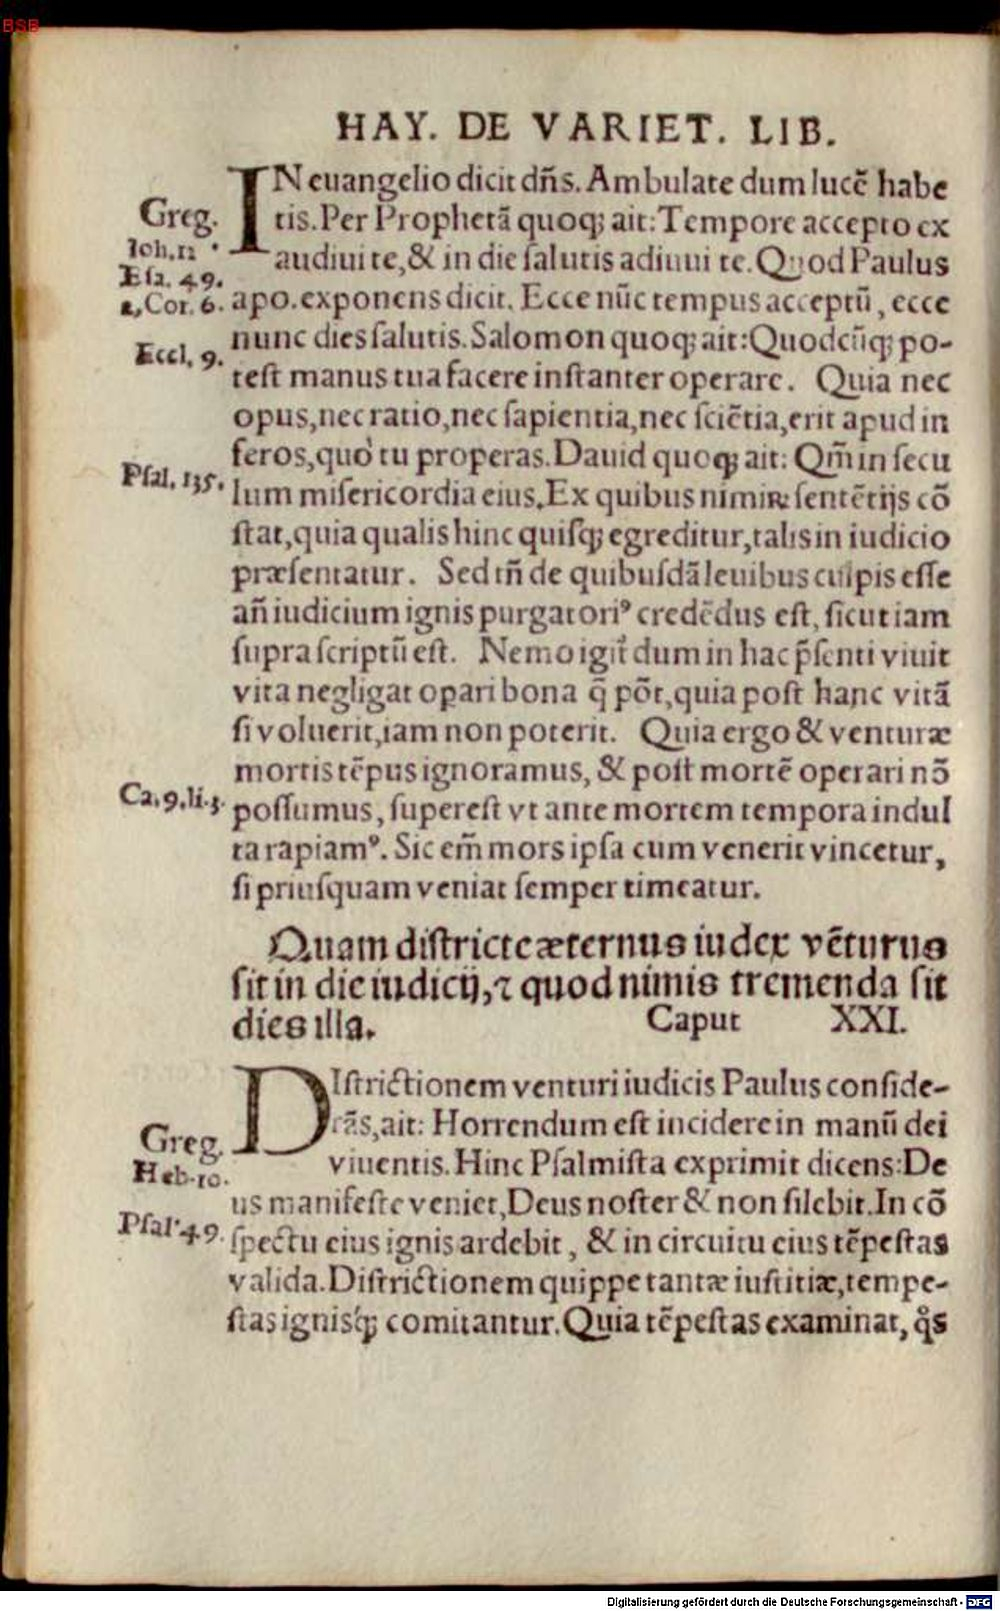 BSB
HAY. DE VARIET. LIB.
IN euangelio dicit dñs. Ambulate dum lucẽ habe
Greg.
tis. Per Prophetã quoqꝫ ait: Tempore accepto ex
Ioh. 12
audiui te, & in die salutis adiuui te. Quod Paulus
Esa. 49.
2. Cor. 6.
apo. exponens dicit. Ecce nũc tempus acceptũ, ecce
nunc dies salutis. Salomon quoqꝫ ait: Quodcũqꝫ po-
Eccl. 9.
test manus tua facere instanter operare. Quia nec
opus, nec ratio, nec sapientia, nec sciẽtia, erit apud in
feros, quò tu properas. Dauid quoqꝫ ait: Qm̃ in secu
Psal. 135.
lum misericordia eius. Ex quibus nimiꝝ sentẽtijs cõ
stat, quia qualis hinc quisqꝫ egreditur, talis in iudicio
præsentatur. Sed tñ de quibusdã leuibus culpis esse
añ iudicium ignis purgatoriꝰ credẽdus est, sicut iam
supra scriptũ est. Nemo igit̃ dum in hac p̃senti viuit
vita negligat oꝑari bona q̃ põt, quia post hanc vitã
si voluerit, iam non poterit. Quia ergo & venturæ
mortis tẽpus ignoramus, & post mortẽ operari nõ
Ca. 9. li. 3.
possumus, superest vt ante mortem tempora indul
ta rapiamꝰ. Sic em̃ mors ipsa cum venerit vincetur,
si priusquam veniat semper timeatur.
Quam districte æternus iudex vẽturus
sit in die iudicij, ⁊ quod nimis tremenda sit
dies illa. Caput XXI.
DIstrictionem venturi iudicis Paulus conside-
rãs, ait: Horrendum est incidere in manũ dei
Greg.
viuentis. Hinc Psalmista exprimit dicens: De
Heb. 10.
us manifeste veniet, Deus noster & non silebit. In cõ
Psal. 49.
spectu eius ignis ardebit, & in circuitu eius tẽpestas
valida. Districtionem quippe tantæ iustitiæ, tempe-
stas ignisqꝫ comitantur. Quia tẽpestas examinat, q̊s
Digitalisierung gefördert durch die Deutsche Forschungsgemeinschaft - DFG